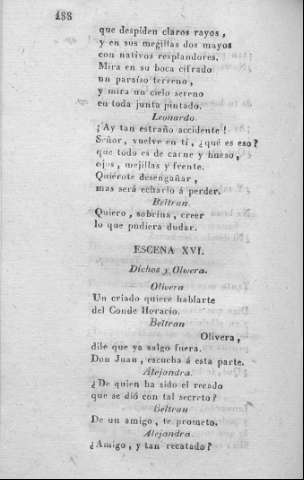 188
que despiden claros rayos,
y en sus megillas dos mayos
con nativos resplandores.
Mira en su boca cifrado
un paraiso terreno,
y mira un cielo sereno
en toda junta pintado.
Leonardo.
¡Ay tan estraño accidente!
Señor, vuelve en tí, ¿qué es eso?
que todo es de carne y hueso,
ojos, megillas y frente.
Quiérote desengañar,
mas será echarlo á perder.
Beltran.
Quiero, sobrina, creer
lo que pudiera dudar.
ESCENA XVI.
Dichos y Olvera.
Olivera
Un criado quiere hablarte
del Conde Horacio.
Beltran
Olivera,
dile que ya salgo fuera.
Don Juan, escucha á esta parte.
Alejandra.
¿De quien ha sido el recado
que se dió con tal secreto?
Beltran
De un amigo, te prometo.
Alejandra.
¿Amigo, y tan recatado?